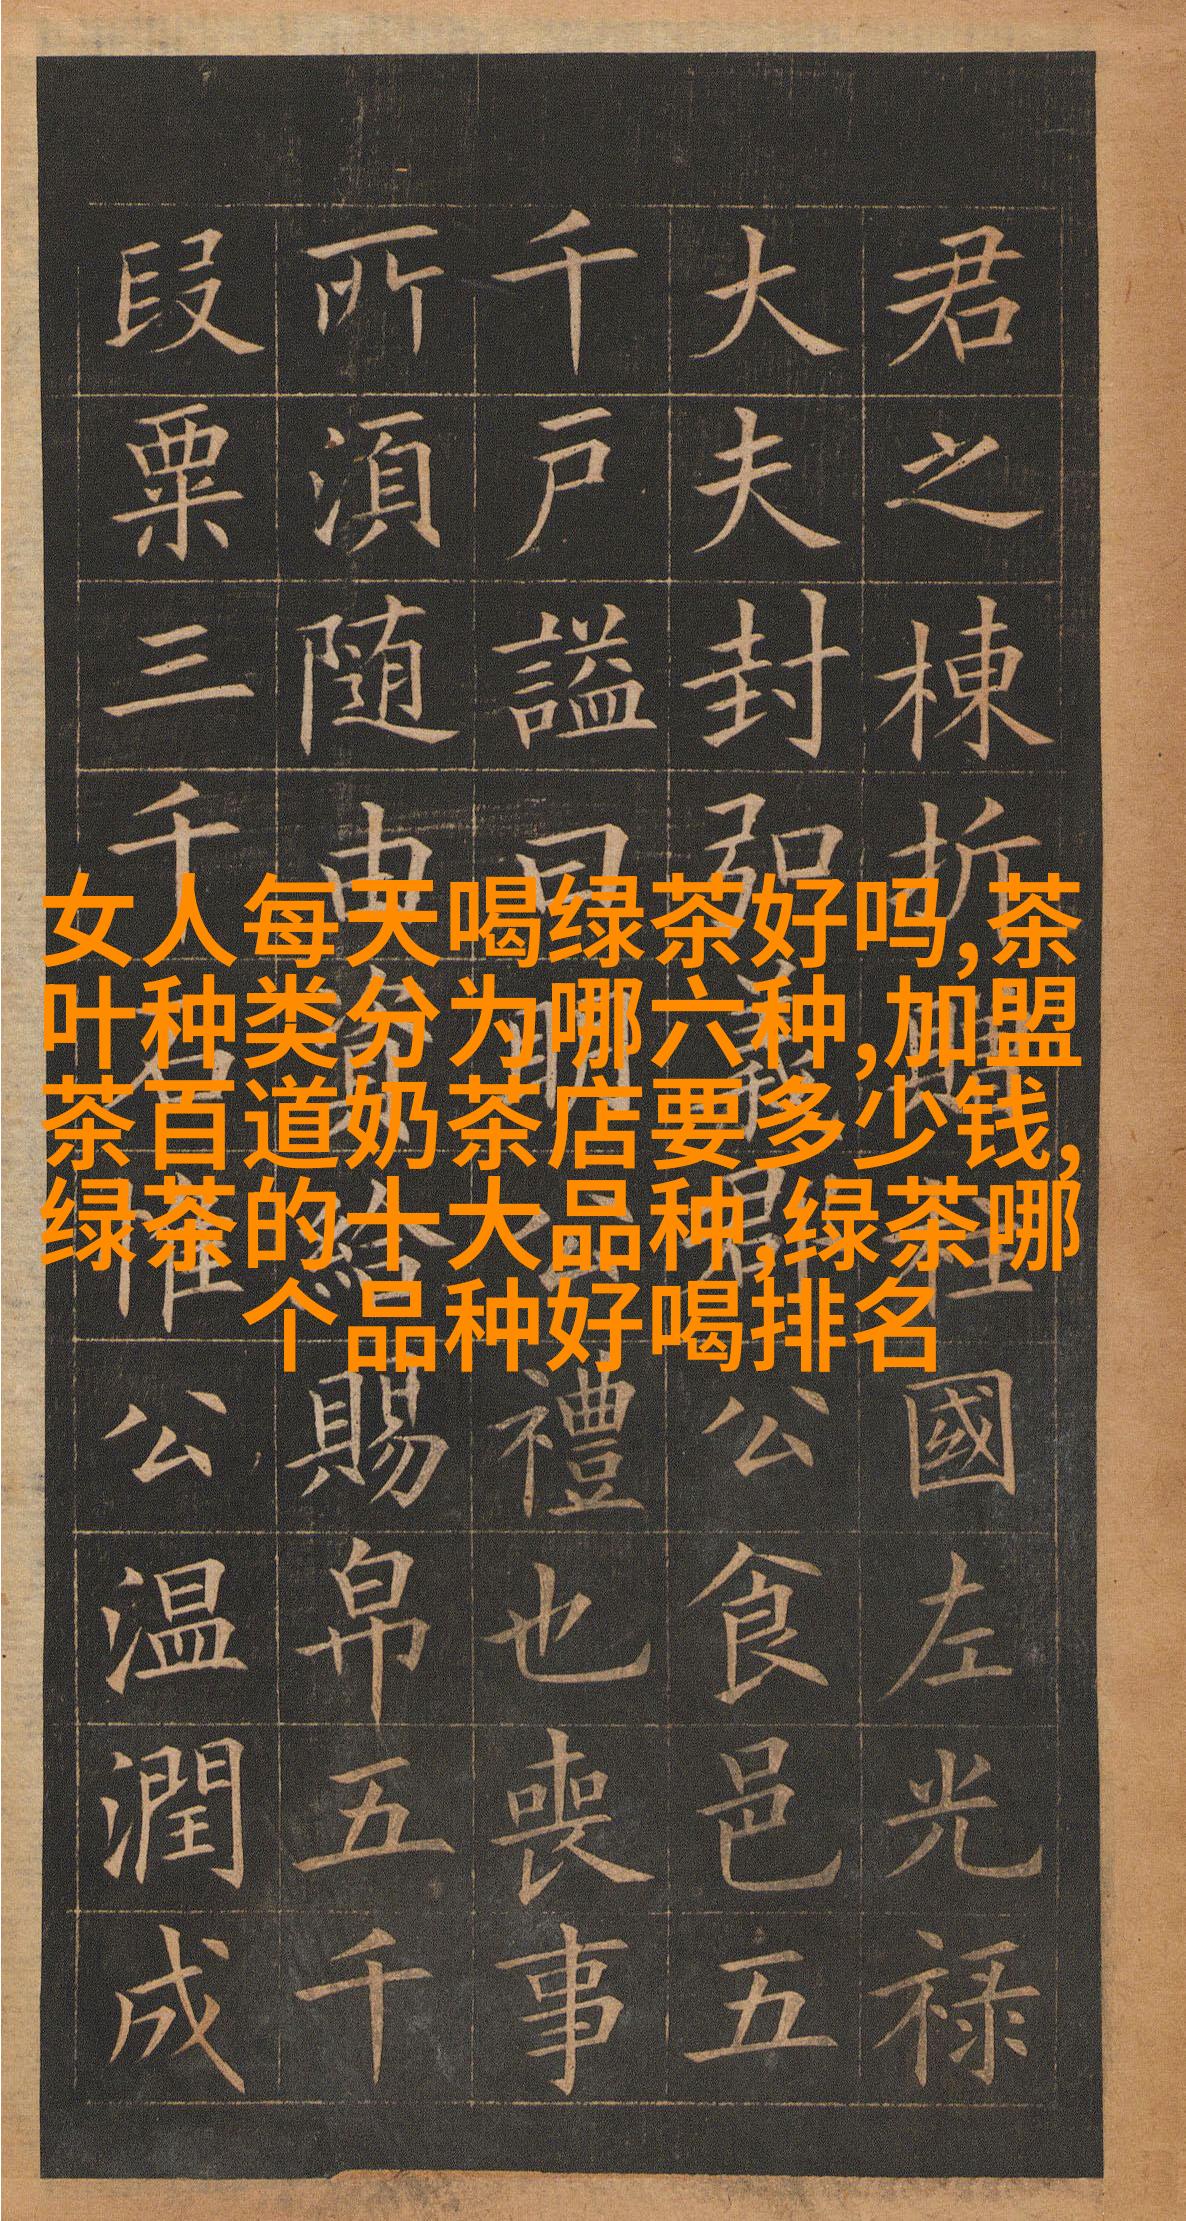 君之棟折柱國左光禄
大夫封公食邑五
千戶謚曰明公禮也喪事
所湏随由資給賜帛五千
段粟三千石惟公温潤成
女人每天喝绿茶好吗,茶
叶种类分为哪六种,加盟
茶百道奶茶店要多少钱,
绿茶的十大品种,绿茶哪
个品种好喝排名